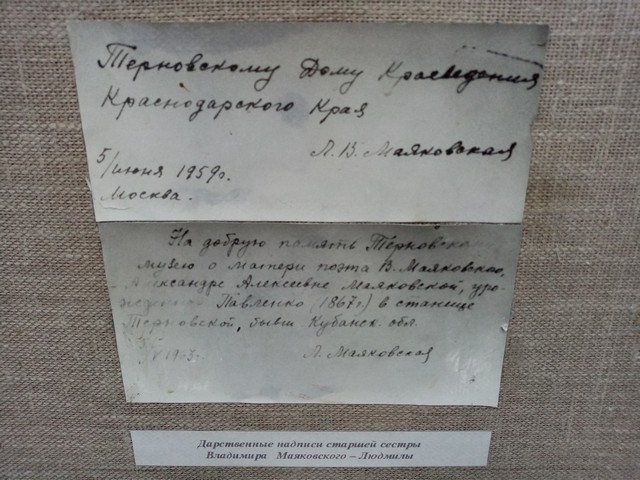 Терновскому Дому Краеведения
Краснодарского Края
Л. В. Маяковская
5/июня 1959г.
Москва.
На добрую память
музею о матери поэта В. Маяковского,
Александре Алексеевне Маяковской, уро-
Павленко (1867г) в станице
Терновской, бывш Кубанск. обл.
V 1963г. Л. Маяковская
Дарственные надписи старшей сестры
Владимира Маяковского – Людмилы